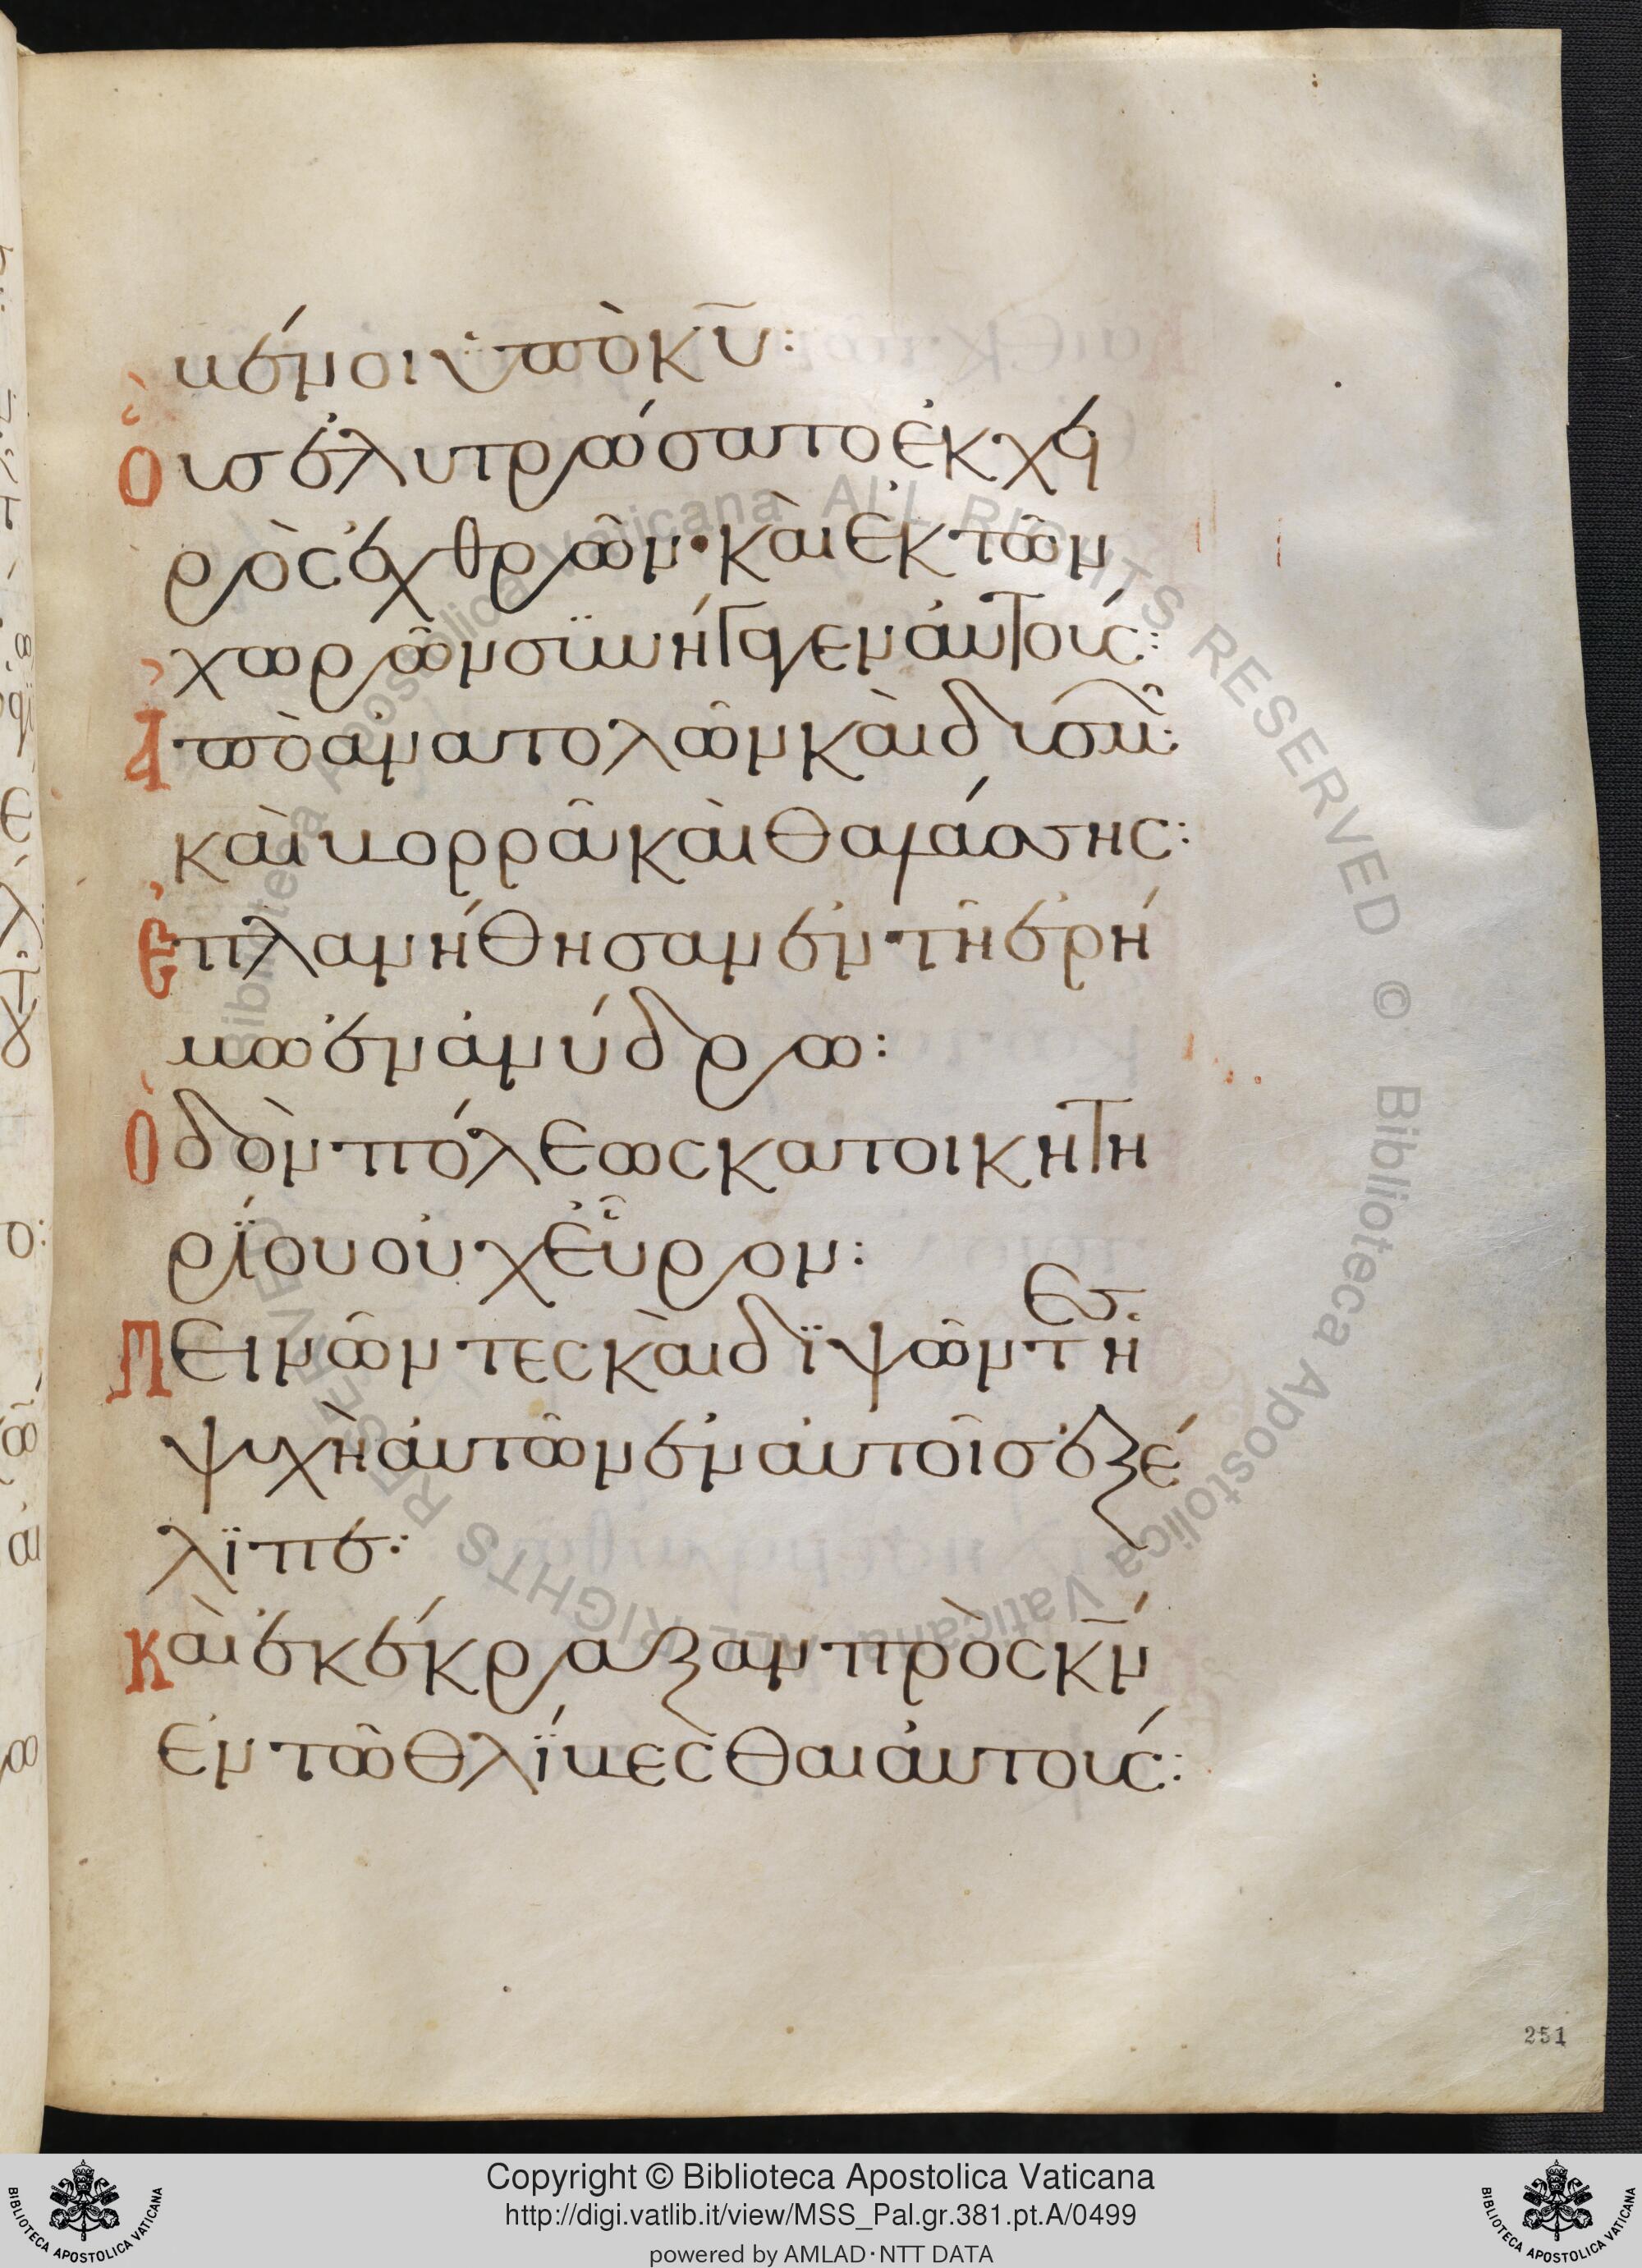 νέμοι ὑπὸ κ̅υ̅:
Οὓς ἐλυτρώσατο ἐκ χει
ρὸς ἐχθρῶν· καὶ ἐκ τῶν
χωρῶν συνήγαγεν αὐτούς:
Ἀπὸ ἀνατολῶν καὶ δυσμῶν:
καὶ βορρᾶ καὶ θαλάσσης:
Ἐπλανήθησαν ἐν τῆ ἐρή
μω ἐν ἀνύδρω:
Ὁδὸν πόλεως κατοικητη
ρΐου οὐχ εὗρον:
Πεινῶντες καὶ διψῶντες· ἡ
ψυχὴ αὐτῶν ἐν αὐτοῖς ἐξέ
λϊπε:
Καὶ ἐκέκραξαν πρὸς κ̅ν̅
ἐν τῶ θλίβεσθαι αὐτούς:
251
Copyright © Biblioteca Apostolica Vaticana
http://digi.vatlib.it/view/MSS_Pal.gr.381.pt.A/0499
powered by AMLAD·NTT DATA
BIBLIOTECA APOSTOLICA VATICANA
BIBLIOTECA APOSTOLICA VATICANA
Biblioteca Apostolica Vaticana ALL RIGHTS RESERVED © Biblioteca Apostolica Vaticana ALL RIGHTS RESERVED